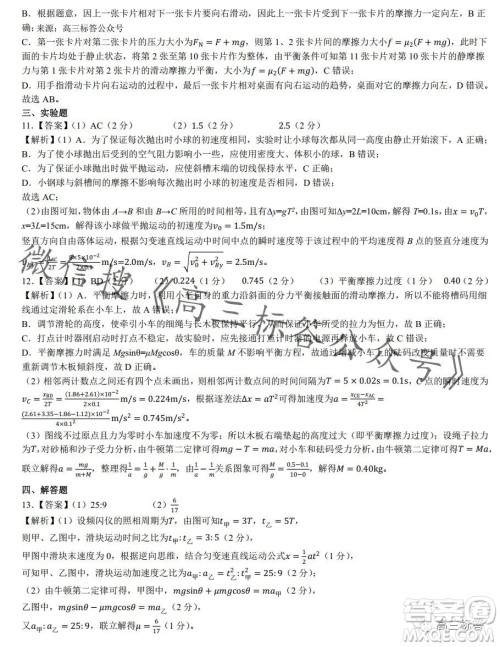 B．根据题意，因上一张卡片相对下一张卡片要向右滑动，因此上一张卡片受到下一张卡片的摩擦力一定向左，B正
确；来源：高三标答公众号
C．第一张卡片对第二张卡片的压力大小为F_N=F+mg，则第1、2张卡片间的摩擦力大小为f=μ₂(F+mg)，下
面的卡片均处于静止状态，将第2张至第10张卡片当作整体，由平衡条件可知第1、2张卡片间的摩擦力与桌面的静摩擦
力与第2张卡片对第1张卡片的滑动摩擦力平衡，大小为f=μ₂(F+mg)，C错误；
D．用手指滑动卡片向右运动的过程中，最后一张卡片相对桌面有向右运动的趋势，桌面对它的摩擦力向左，D错误。
故选AB。
三、实验题
11.【答案】（1）AC（2分） （2）1.5（2分） 2.5（2分）
【解析】（1）A．为了保证每次抛出时小球的初速度大小相同，实验时让小球每次都从同一高度由静止开始滚下，A正确；
B．为了使小球抛出后受到的空气阻力影响小，不可以选用塑料球代替小钢球，B错误；
C．为了保证小球抛出时速度方向水平，需调节使斜槽末端的切线保持水平，C正确；
D．小钢球与斜槽间的摩擦不影响每次抛出时小球的初速度是否相同，D错误。
故选AC；
（2）由图可知，物体由A→B和由B→C所用的时间相等，且有Δy=gT²，由图可知Δy=2L=10cm，解得T=0.1s，由x=v₀T，
x=3L=15cm，解得该小球做平抛运动的初速度为v₀=1.5m/s；
竖直方向自由落体运动，根据匀变速直线运动中时间中点的瞬时速度等于该过程中的平均速度得B点的竖直分速度为
m/s=2.0m/s，v_B=√(v₀²+v_By²)=2.5m/s。
12.【答案】（1）BD（2分） （2）0.224（1分） 0.745（2分） （3）平衡摩擦力过度（1分） 0.40（2分）
B．调节滑轮的高度，使牵引小车的细绳与长木板保持平行，这样小车所受的拉力为恒力，B正确；
C．打点计时器刚启动时打点不稳定，故实验时，应先接通电源后释放小车，故C错误；
D．平衡摩擦力时满足Mgsinθ=μMgcosθ，车的质量M不影响平衡方程，故通过增减小车上的砝码改变质量时不需要
重新调节木板倾斜度，故D正确。
（2）相邻两计数点之间还有四个点未画出，则相邻两计数点间的时间间隔为T=5×0.02s=0.1s，C点的瞬时速度为
v_C=x_BD/2T=(1.86+2.61)×10⁻²/(2×0.1)m/s=0.224m/s，根据逐差法Δx=aT²可得小车运动的加速度为a=(x_CE−x_AC)/4T²=
(2.61+3.35−1.86−1.12)×10⁻²/(2×0.1)²m/s²=0.745m/s²。
（3）图线不过原点且力为零时小车加速度不为零，所以长木板右端垫起的高度过高（即平衡摩擦力过度）；设绳子拉力
为T，对砂桶和砂受力分析，由牛顿第二定律可得mg−T=ma，对小车和砝码受力分析，由牛顿第二定律可得T=Ma，
联立解得a=mg/(m+M)，整理得1/a=1/g+M/g·1/m，由关系图象可得M/g=(0.5−0.1)/(10−0)，解得M=0.40kg。
四、解答题
13.【答案】（1）25:9 （2）6/17
【解析】（1）设频闪仪的照相周期为T，由图可知t甲=3T，t乙=5T（2分）
则甲、乙图中，滑块运动时间之比为t甲:t乙=3:5（2分）
甲图中滑块末速度为0，根据逆向思维，结合匀变速直线运动公式x=½at²（1分）
可知甲、乙图中，滑块运动加速度之比为a甲:a乙=t乙²:t甲²=25:9（2分）
（2）由牛顿第二定律可得，甲图中，mgsinθ+μmgcosθ=ma甲（2分）
乙图中，mgsinθ−μmgcosθ=ma乙（2分）
又a甲:a乙=25:9，联立解得μ=6/17（1分）
微信搜《高三标答公众号》
高三标答